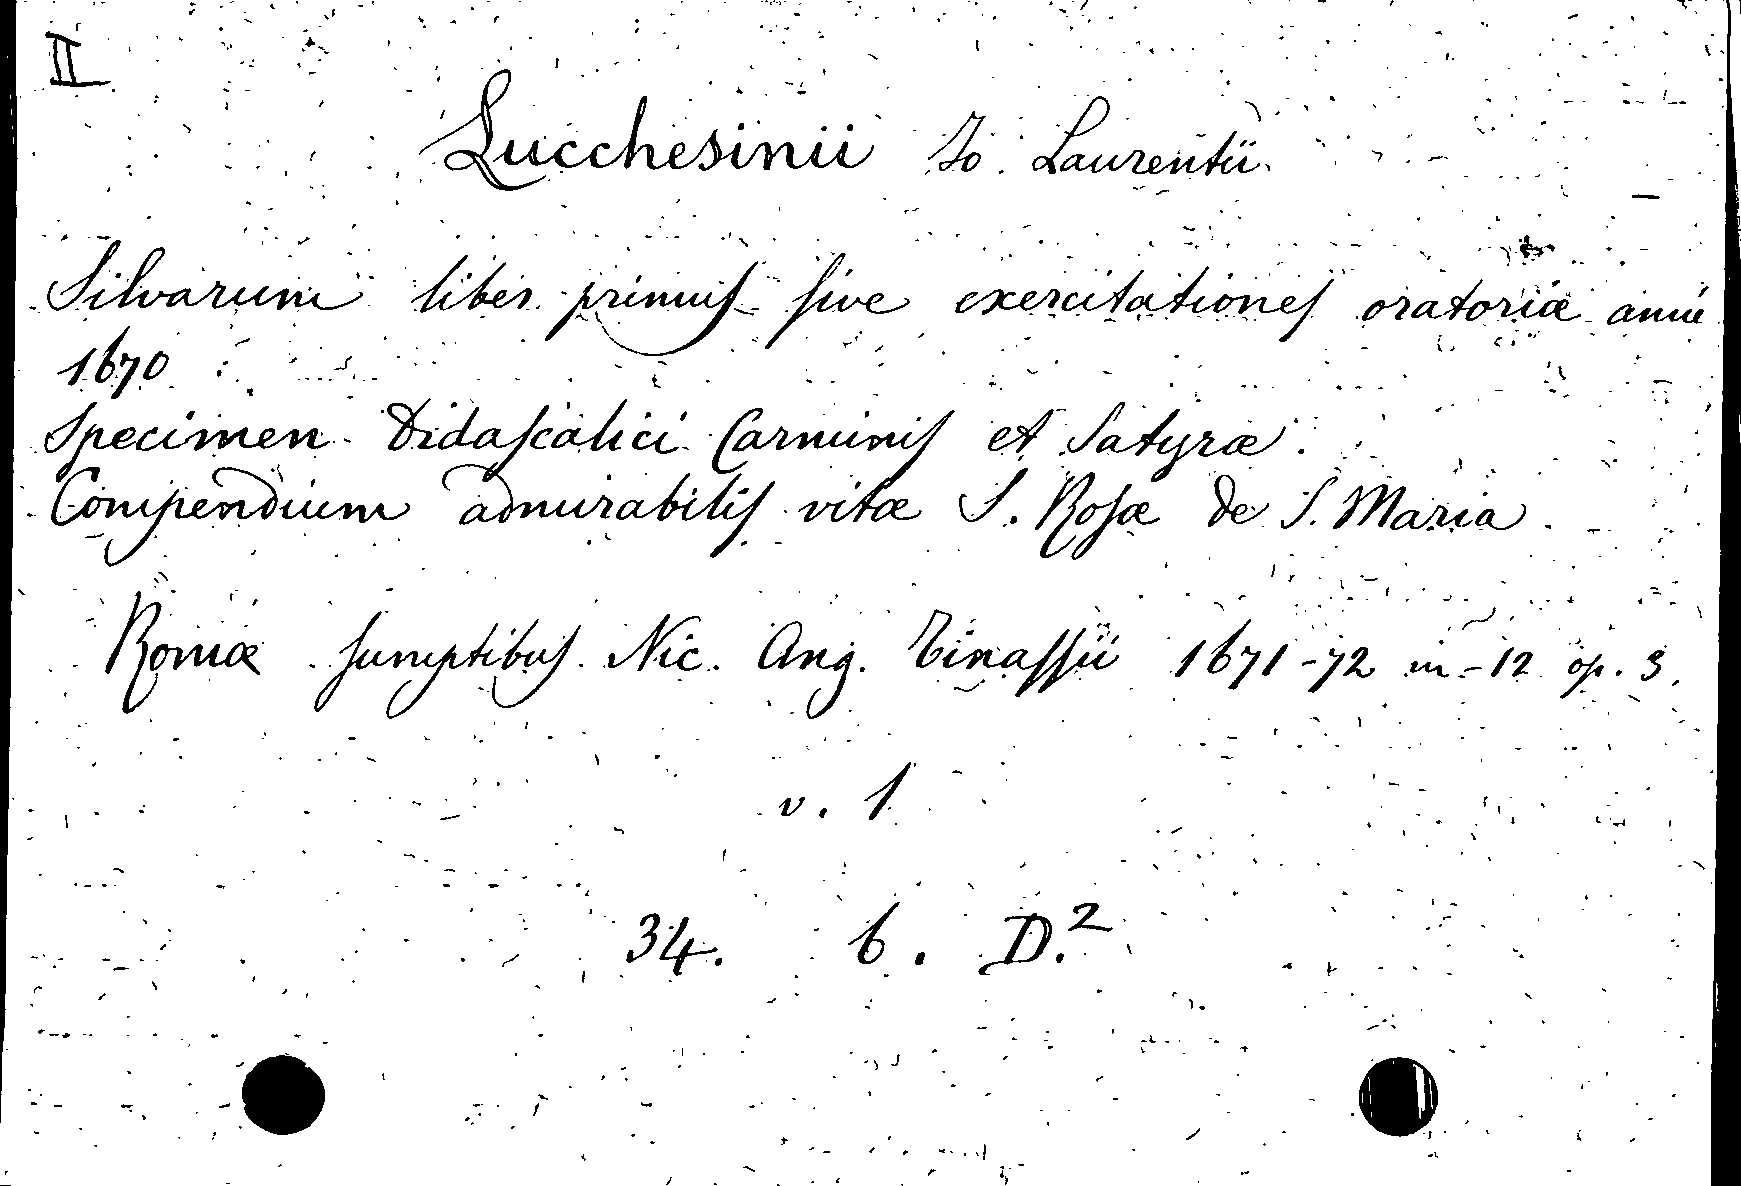 II
Lucchesinii Jo. Laurentii
Silvarum liber primus sive exercitationes oratoriæ anni
1670
Specimen Didascalici Carminis et Satyræ.
Compendium admirabilis vitæ S. Rosæ de S. Maria.
Romæ sumptibus Nic. Ang. Tinassii 1671-72 in-12 op. 3.
v. 1
34. 6. D.²